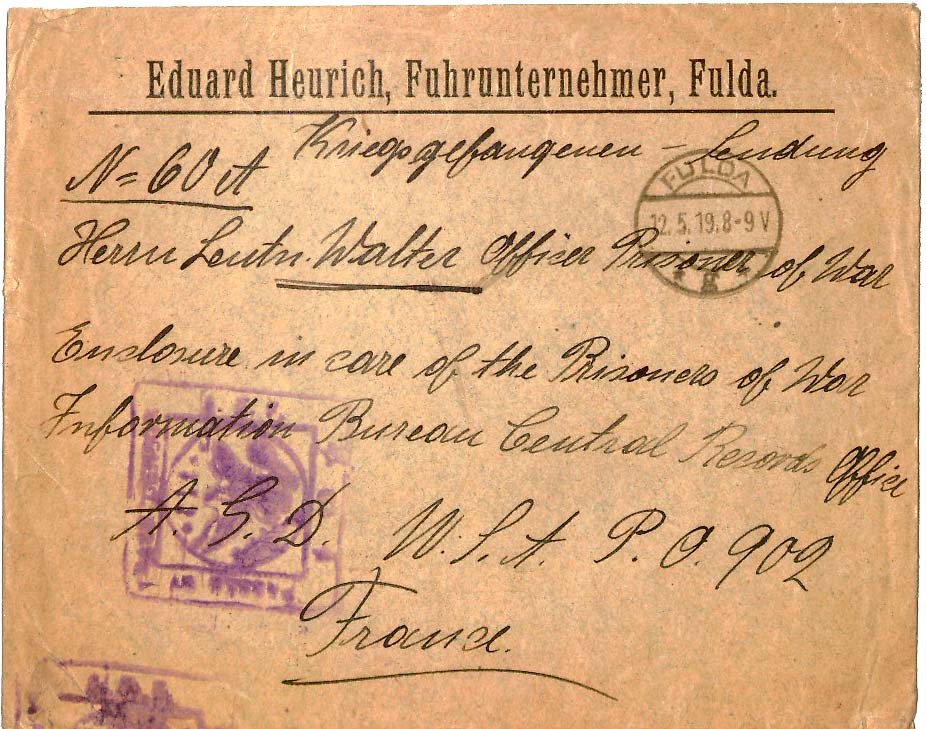 Eduard Heurich, Fuhrunternehmer, Fulda.
Kriegsgefangenen - Sendung
N= 60 A
FULDA
12.5.19.8-9 V
Herrn Leutn. Walter Officer Prisoner of War
Enclosure in care of the Prisoners of War
Information Bureau Central Records Office
A. G. D. U. S. A. P. O. 902
France.